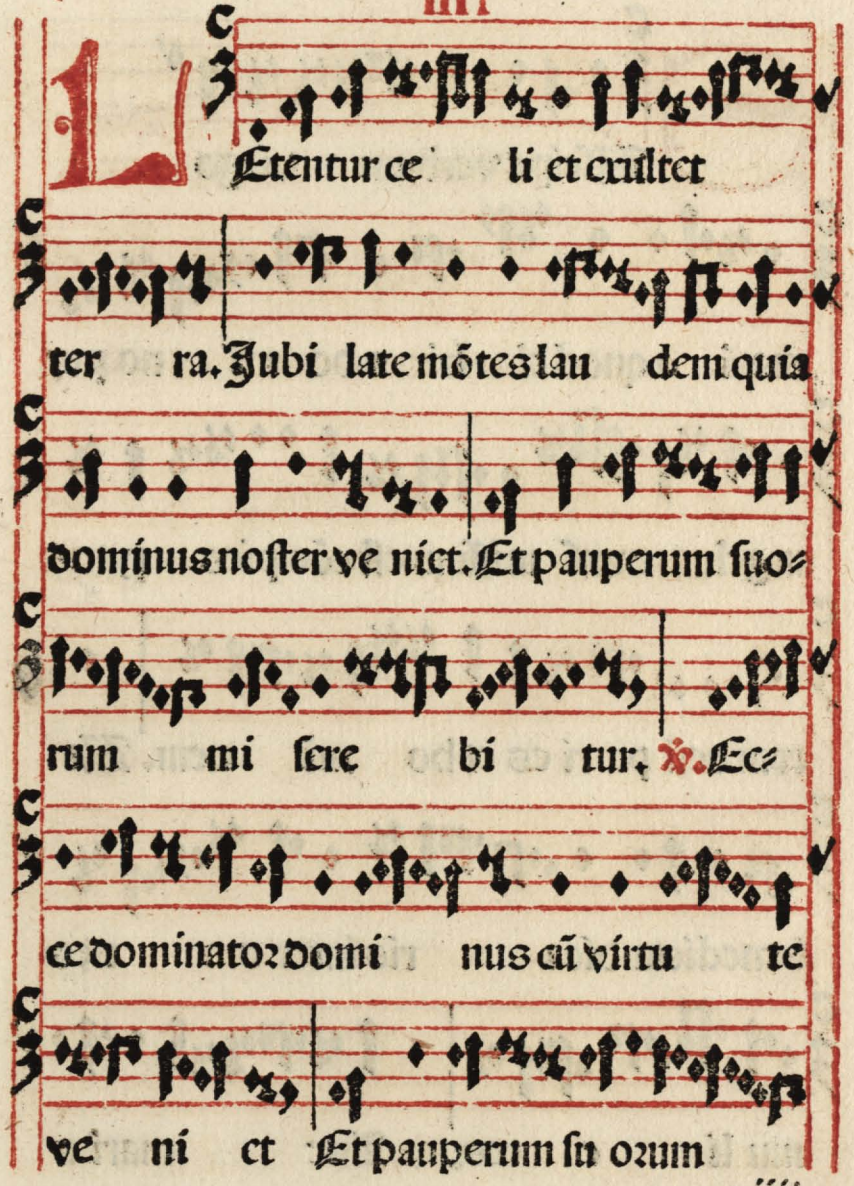 IIII
LEtentur ce li et exultet
ter ra. Jubi late mōtes lau dem quia
dominus noster ve niet. Et pauperum suo⸗
rum mi sere bi tur. ℣. Ec⸗
ce dominator domi nus cū virtu te
ve ni et Et pauperum su orum